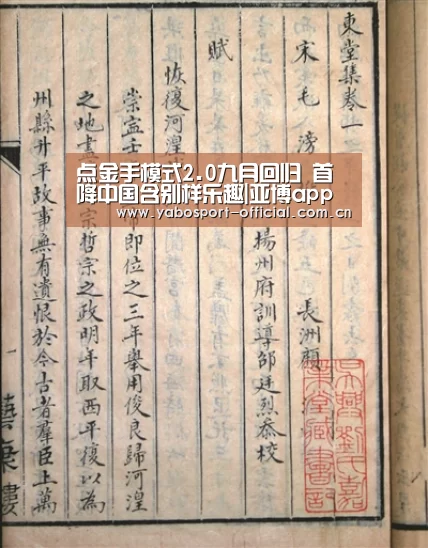 東堂集卷一
宋毛滂 長洲顧
揚州府訓導邵廷烈校
賦
恢復河湟
崇寧壬 即位之三年舉用俊良歸河湟
之地 宗哲宗之政明年取西平復以為
州縣升平故事無有遺恨於今古者羣臣上萬
藝海樓
吳興劉氏嘉
業堂藏書記
点金手模式2.0九月回归 首
降中国含别样乐趣|亚博app
www.yabosport-official.com